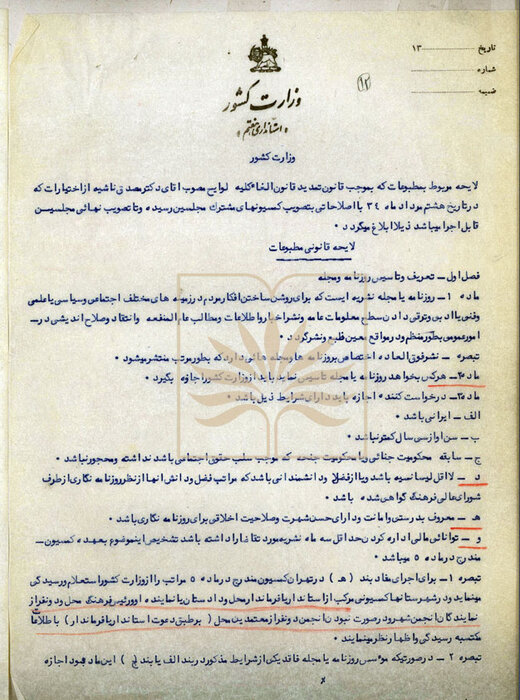 تاریخ ۱۳
شماره
ضمیمه
(۱۲)
وزارت کشور
«استانداری هفتم»
وزارت کشور
لایحه مربوط بمطبوعات که بموجب قانون تمدید قانون الغاء کلیه لوایح مصوب آقای دکتر مصدق ناشیه از اختیارات که
در تاریخ هشتم مرداد ماه ۳۴ با اصلاحاتی بتصویب کمسیونهای مشترک مجلسین رسیده و تا تصویب نهائی مجلسین
قابل اجرا میباشد ذیلا ابلاغ میگردد ۰
لایحه قانونی مطبوعات
فصل اول ـ تعریف و تاسیس روزنامه و مجله
ماده ۱ ـ روزنامه یا مجله نشریه ایست که برای روشن ساختن افکار مردم در زمینه های مختلف اجتماعی و سیاسی یا علمی
و فنی یا ادبی و ترقی دادن سطح معلومات عامه و نشر اخبار و اطلاعات و مطالب عام المنفعه و انتقاد و صلاح اندیشی در ـ
امور عمومی بطور منظم و در مواقع معین طبع و نشر گردد ۰
تبصره ـ نشر فوق العاده اختصاص بروزنامه ها و مجله هائی دارد که بطور مرتب منتشر میشود
ماده ۲ ـ هر کس بخواهد روزنامه یا مجله تاسیس نماید باید از وزارت کشور اجازه بگیرد ۰
ماده ۳ ـ درخواست کننده اجازه باید دارای شرایط ذیل باشد ۰
الف ـ ایرانی باشد ۰
ب ـ سن او از سی سال کمتر نباشد ۰
ج ـ سابقه محکومیت جنائی و یا محکومیت جنحه که موجب سلب حقوق اجتماعی باشد نداشته و محجور نباشد ۰
د ـ لا اقل لیسانسیه باشد و یا از فضلا و دانشمندانی باشد که مراتب فضل و دانش آنها از نظر روزنامه نگاری از طرف
شورای عالی فرهنگ گواهی شده باشد ۰
هـ ـ معروف بدرستی و امانت و دارای حسن شهرت و صلاحیت اخلاقی برای روزنامه نگاری باشد ۰
و ـ توانائی مالی اداره کردن حد اقل سه ماه نشریه مورد تقاضا را داشته باشد تشخیص اینموضوع بعهده کمسیون ـ
مندرج در ماده ۵ میباشد
تبصره ۱ ـ برای اجرای مفاد بند ( هـ ) در تهران کمسیون مندرج در ماده ۵ مراتب را از وزارت کشور استعلام و رسیدگی
مینماید و در شهرستانها کمسیونی مرکب از استاندار یا فرماندار محل و دادستان یا نماینده او و رئیس فرهنگ محل و دو نفر از
نمایندگان انجمن شهر و در صورت نبودن انجمن دو نفر از معتمدین محل ( بر طبق دعوت استاندار یا فرماندار ) با اطلاعات
مکتسبه رسیدگی و اظهار نظر مینمایند ۰
تبصره ۲ ـ در صورتیکه موسس روزنامه یا مجله فاقد یکی از شرایط مذکور در بند الف یا بند ( ج ) این ماده بود اجازه